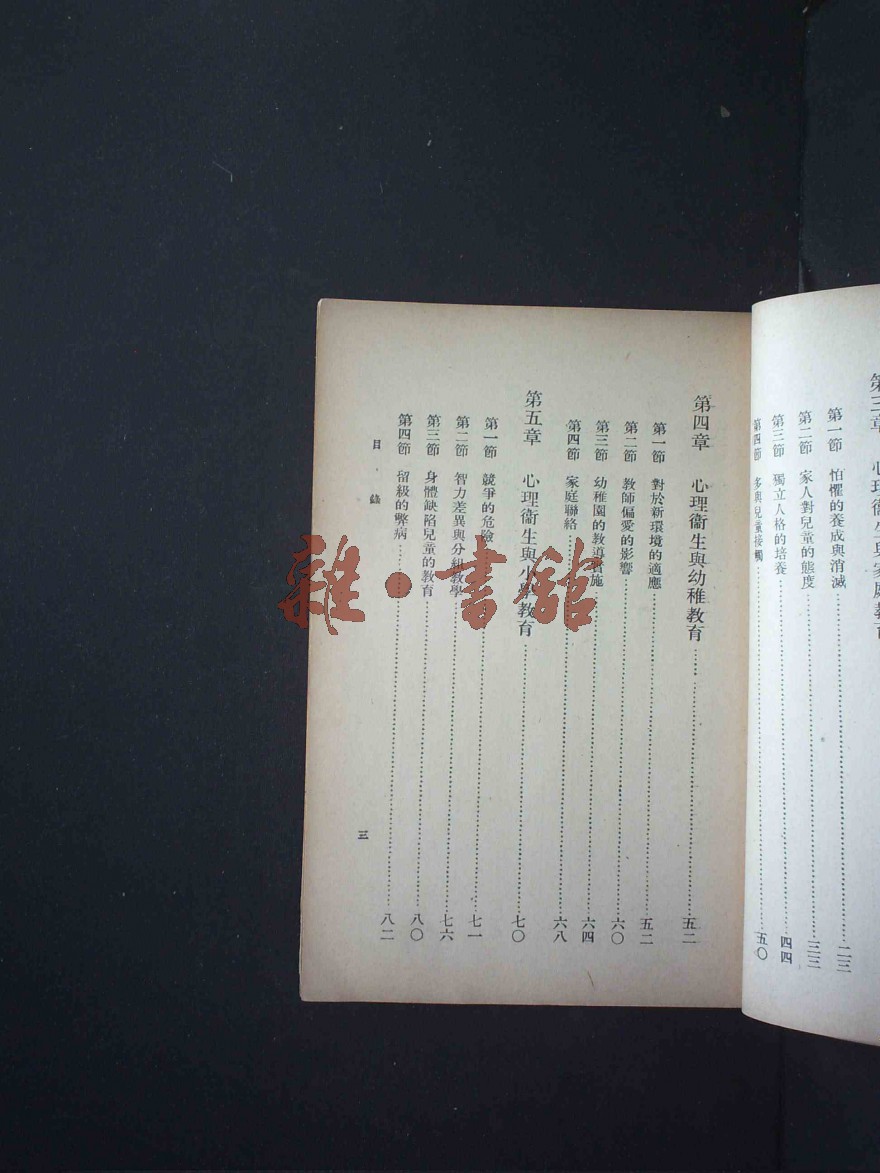 第三章　心理衞生與家庭教育
第一節　怕懼的養成與消滅……二三
第二節　家人對兒童的態度……三三
第三節　獨立人格的培養……四四
第四節　多與兒童接觸……五〇
第四章　心理衞生與幼稚教育……五二
第一節　對於新環境的適應……五二
第二節　教師偏愛的影響……六〇
第三節　幼稚園的教導設施……六四
第四節　家庭聯絡……六八
第五章　心理衞生與小學教育……七〇
第一節　競爭的危險……七一
第二節　智力差異與分組教學……七六
第三節　身體缺陷兒童的教育……八〇
第四節　留級的弊病……八二
目錄
三
雜·書館